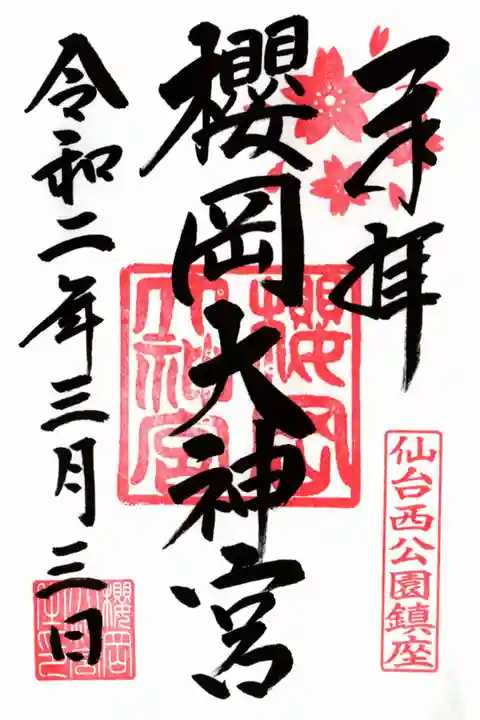 奉拝
櫻岡大神宮
櫻岡大神宮
仙台西公園鎮座
令和二年三月三日